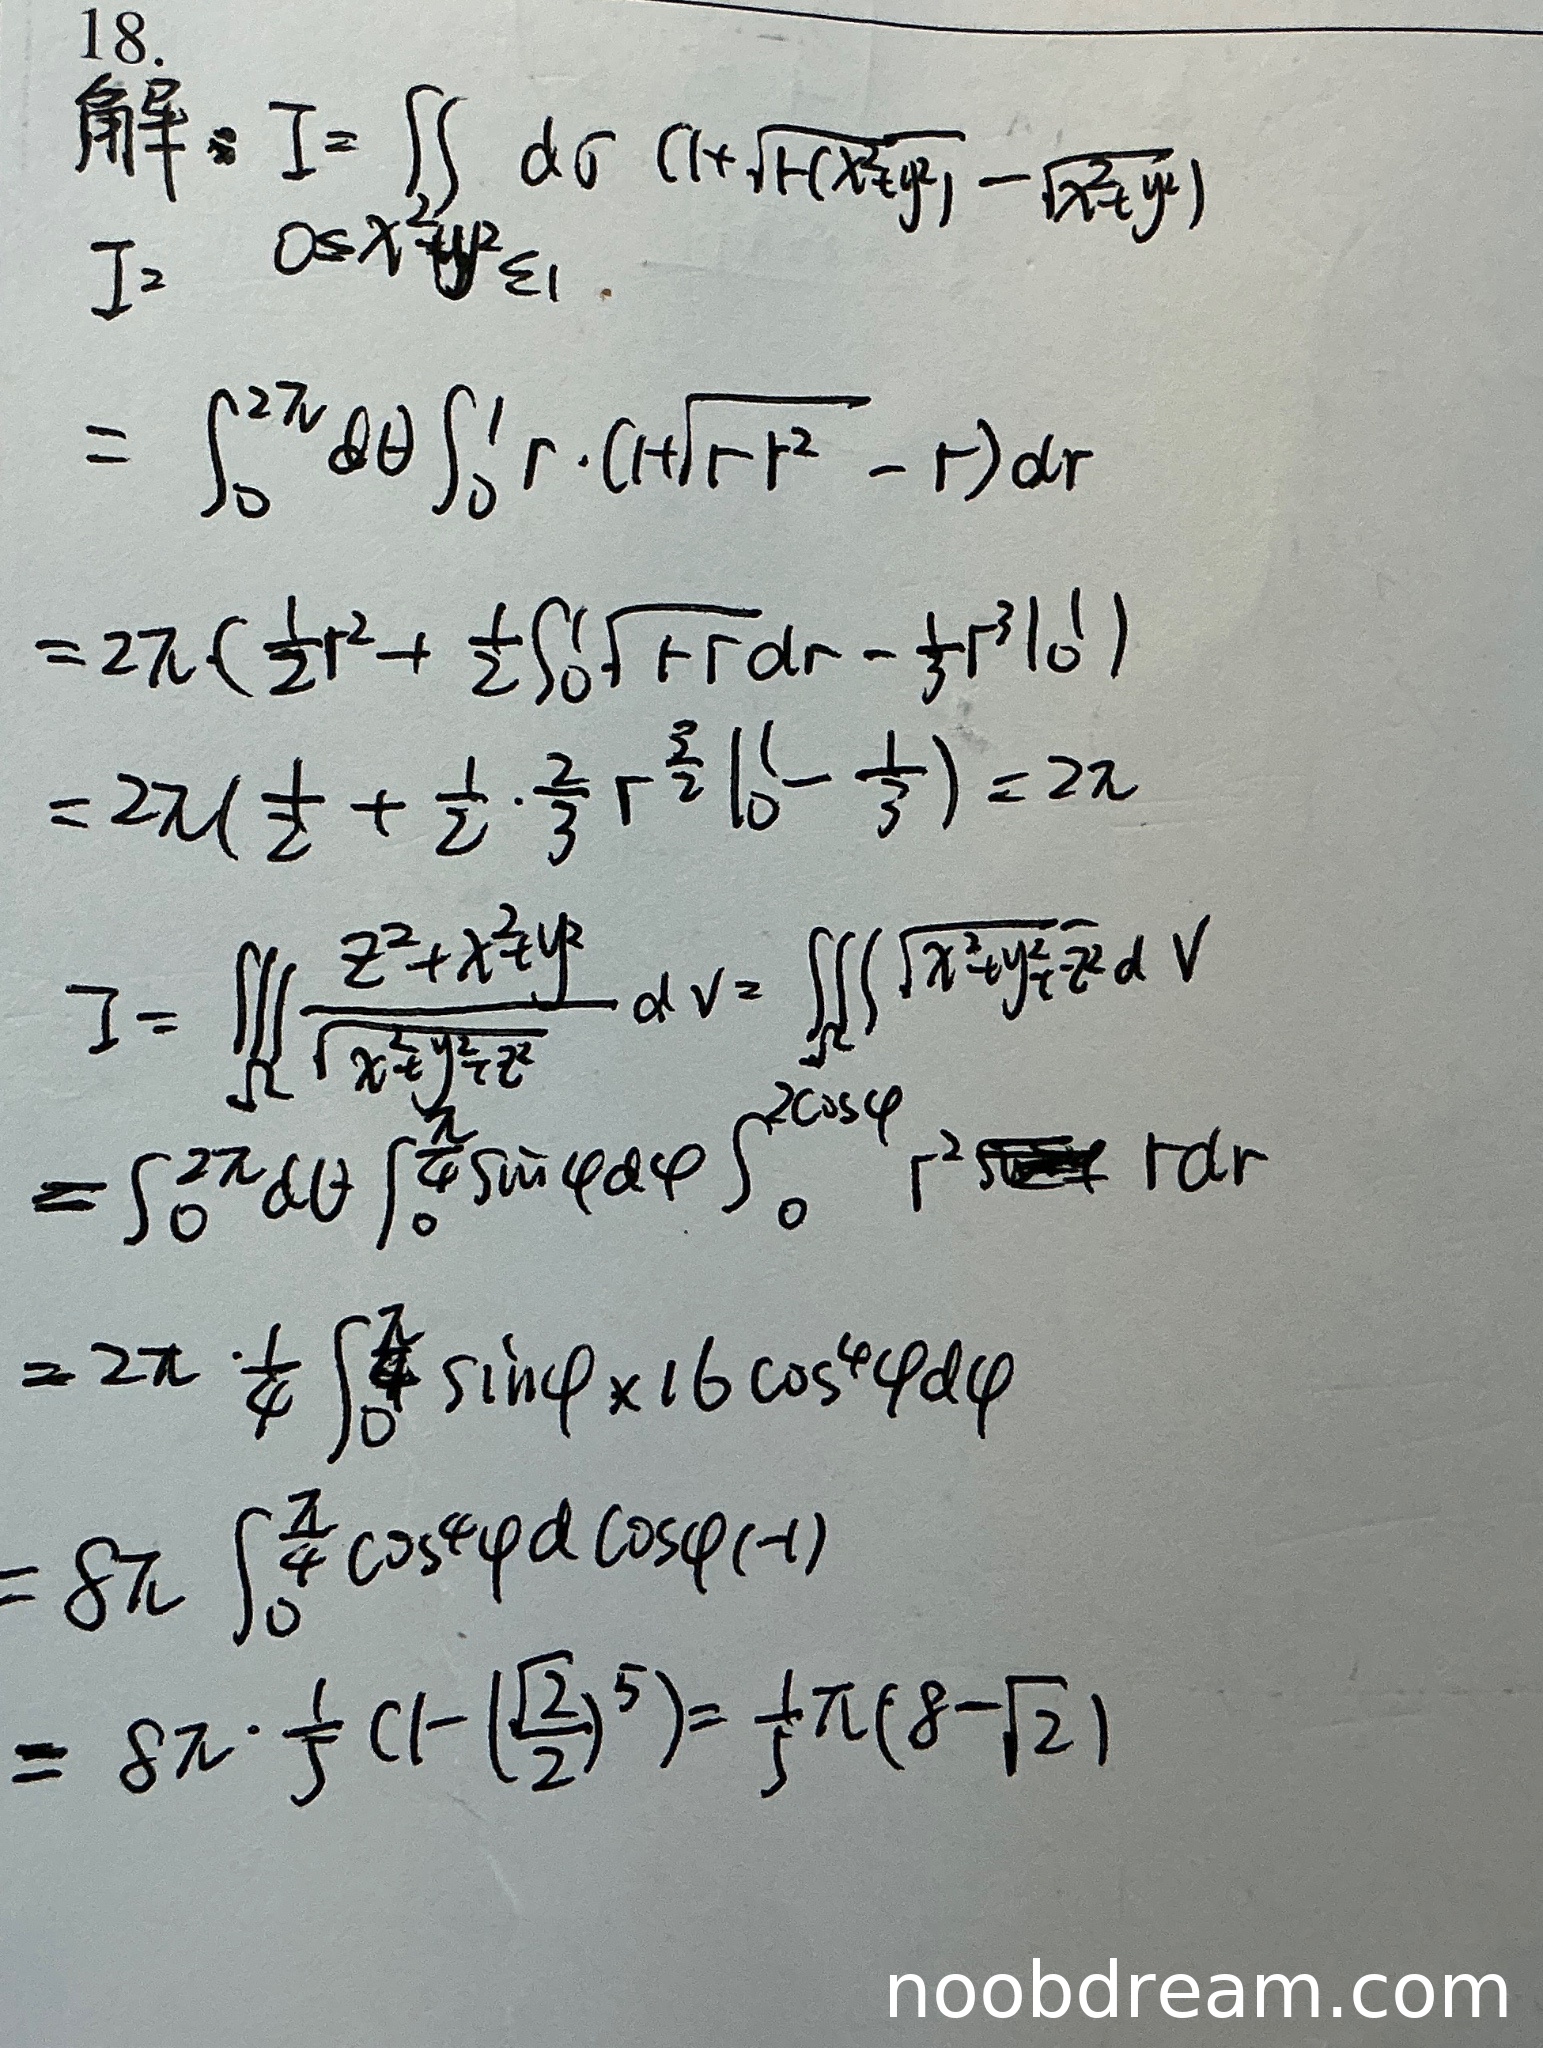 18.
解: I = ∬ dσ (1+√(1-(x²+y²)) - √(x²+y²))
I= 0≤x²+y²≤1
= ∫₀^{2π} dθ ∫₀¹ r·(1+√(1-r²) - r) dr
= 2π( 1/2 r² + 1/2 ∫₀¹ √(1-r) dr - 1/3 r³ |₀¹ )
= 2π( 1/2 + 1/2 · 2/3 r^{3/2} |₀¹ - 1/3 ) = 2π
I = ∭_Ω (z²+x²+y²)/√(x²+y²+z²) dV = ∭_Ω √(x²+y²+z²) dV
= ∫₀^{2π} dθ ∫₀^{π/4} sinφdφ ∫₀^{2cosφ} r² rdr
= 2π · 1/4 ∫₀^{π/4} sinφ × 16 cos⁴φdφ
= 8π ∫₀^{π/4} cos⁴φ d cosφ (-1)
= 8π · 1/5 (1-(√2/2)⁵) = 1/5 π(8-√2)
noobdream.com